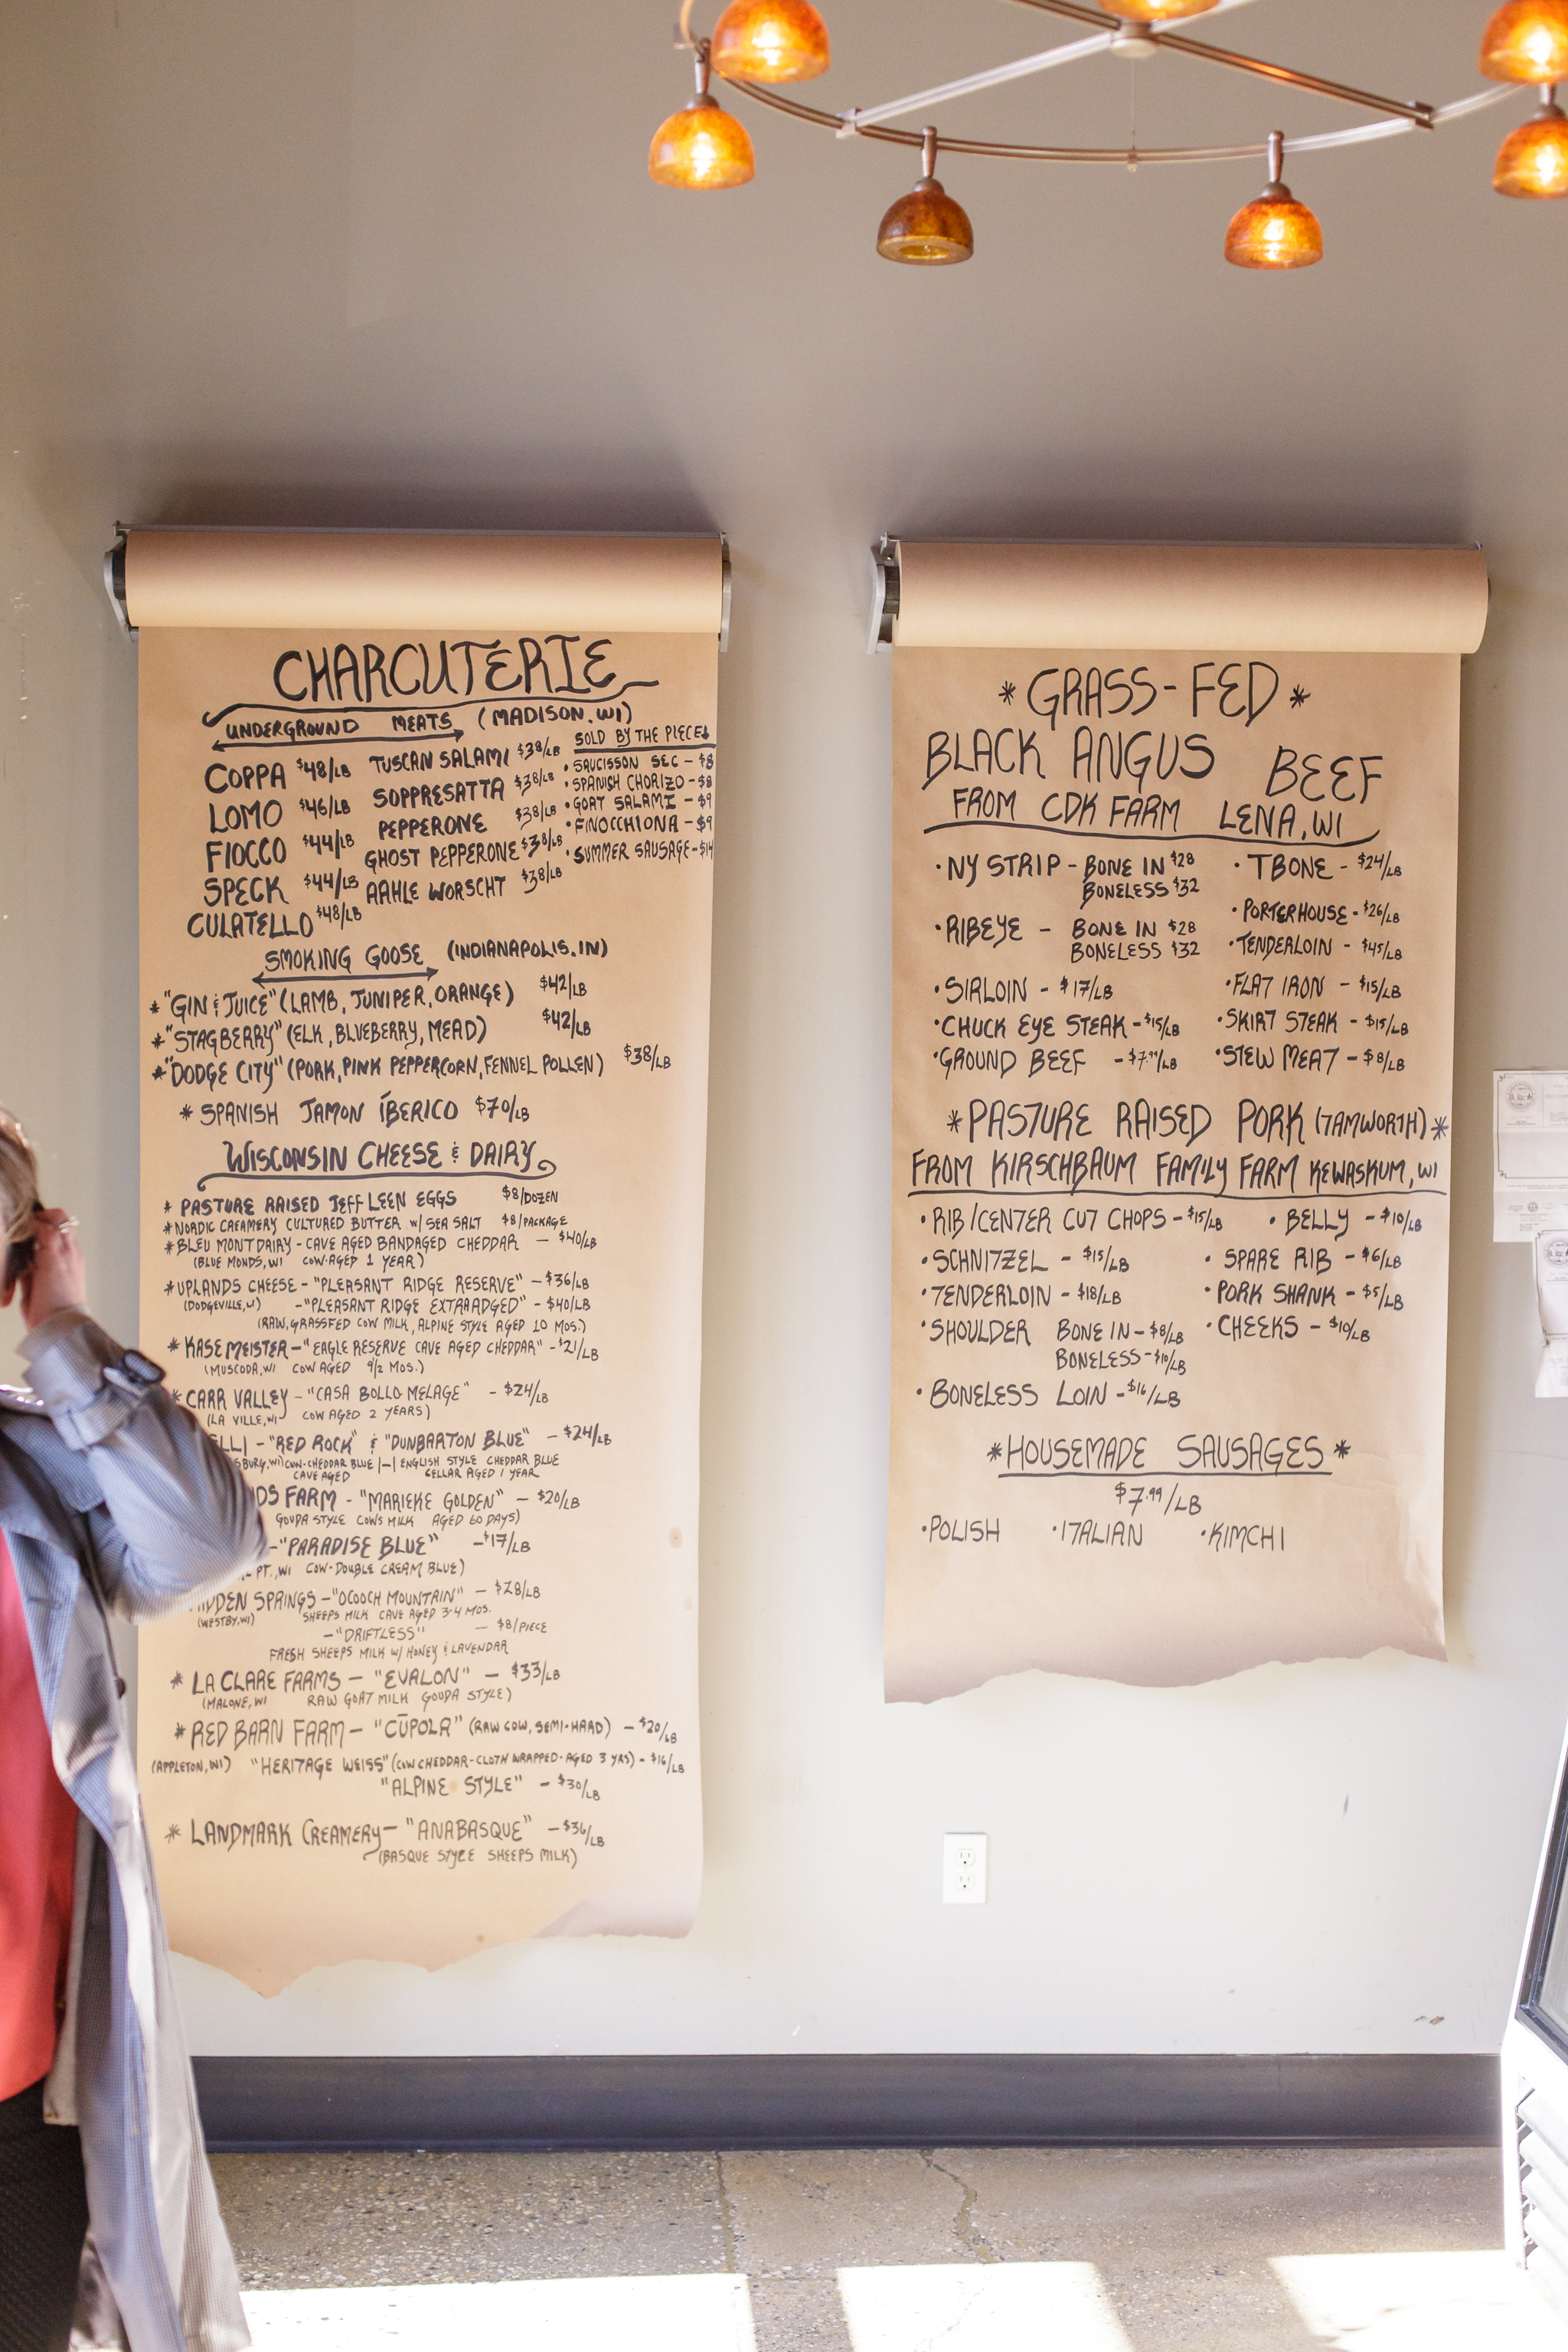 CHARCUTERIE
UNDERGROUND MEATS (MADISON, WI)
COPPA $48/LB
LOMO $46/LB
FIOCCO $44/LB
SPECK $44/LB
CULATELLO $48/LB
TUSCAN SALAMI $38/LB
SOPPRESATTA $38/LB
PEPPERONE $38/LB
GHOST PEPPERONE $38/LB
AAHLE WORSCHT $38/LB
SOLD BY THE PIECE↓
• SAUCISSON SEC - $8
• SPANISH CHORIZO - $8
• GOAT SALAMI - $9
• FINOCCHIONA - $9
• SUMMER SAUSAGE - $14
SMOKING GOOSE (INDIANAPOLIS, IN)
* "GIN & JUICE" (LAMB, JUNIPER, ORANGE) $42/LB
* "STAGBERRY" (ELK, BLUEBERRY, MEAD) $42/LB
* "DODGE CITY" (PORK, PINK PEPPERCORN, FENNEL POLLEN) $38/LB
* SPANISH JAMON ÍBERICO $70/LB
WISCONSIN CHEESE & DAIRY
* PASTURE RAISED JEFF LEEN EGGS $8/DOZEN
* NORDIC CREAMERY CULTURED BUTTER W/ SEA SALT $8/PACKAGE
* BLEU MONT DAIRY - CAVE AGED BANDAGED CHEDDAR - $40/LB
(BLUE MONDS, WI COW-AGED 1 YEAR)
* UPLANDS CHEESE - "PLEASANT RIDGE RESERVE" - $36/LB
(DODGEVILLE, WI) - "PLEASANT RIDGE EXTRA ADGED" - $40/LB
(RAW, GRASSFED COW MILK, ALPINE STYLE AGED 10 MOS.)
* KASE MEISTER - "EAGLE RESERVE CAVE AGED CHEDDAR" - $21/LB
(MUSCODA, WI COW AGED 9 1/2 MOS.)
* CARR VALLEY - "CASA BOLLO MELAGE" - $24/LB
(LA VILLE, WI COW AGED 2 YEARS)
ELLI - "RED ROCK" & "DUNBARTON BLUE" - $24/LB
SBURG, WI) COW-CHEDDAR BLUE |-| ENGLISH STYLE CHEDDAR BLUE
CAVE AGED CELLAR AGED 1 YEAR
DS FARM - "MARIEKE GOLDEN" - $20/LB
GOUDA STYLE COWS MILK AGED 60 DAYS)
- "PARADISE BLUE" - $17/LB
PT., WI COW-DOUBLE CREAM BLUE)
HIDDEN SPRINGS - "OCOOCH MOUNTAIN" - $28/LB
(WESTBY, WI) SHEEPS MILK CAVE AGED 3-4 MOS.
- "DRIFTLESS" - $8/PIECE
FRESH SHEEPS MILK W/ HONEY & LAVENDAR
* LA CLARE FARMS - "EVALON" - $33/LB
(MALONE, WI RAW GOAT MILK GOUDA STYLE)
* RED BARN FARM - "CŪPOLA" (RAW COW, SEMI-HARD) - $20/LB
(APPLETON, WI) "HERITAGE WEISS" (COW CHEDDAR-CLOTH WRAPPED-AGED 3 YRS) - $16/LB
"ALPINE STYLE" - $30/LB
* LANDMARK CREAMERY - "ANABASQUE" - $36/LB
(BASQUE STYLE SHEEPS MILK)
* GRASS-FED *
BLACK ANGUS BEEF
FROM CDK FARM LENA, WI
• NY STRIP - BONE IN $28
BONELESS $32
• RIBEYE - BONE IN $28
BONELESS $32
• SIRLOIN - $17/LB
• CHUCK EYE STEAK - $15/LB
• GROUND BEEF - $7.99/LB
• TBONE - $24/LB
• PORTERHOUSE - $26/LB
• TENDERLOIN - $45/LB
• FLAT IRON - $15/LB
• SKIRT STEAK - $15/LB
• STEW MEAT - $8/LB
* PASTURE RAISED PORK (TAMWORTH) *
FROM KIRSCHBAUM FAMILY FARM KEWASKUM, WI
• RIB/CENTER CUT CHOPS - $15/LB
• SCHNITZEL - $15/LB
• TENDERLOIN - $18/LB
• SHOULDER BONE IN - $8/LB
BONELESS - $10/LB
• BONELESS LOIN - $16/LB
• BELLY - $10/LB
• SPARE RIB - $6/LB
• PORK SHANK - $5/LB
• CHEEKS - $10/LB
* HOUSEMADE SAUSAGES *
$7.99/LB
• POLISH • ITALIAN • KIMCHI